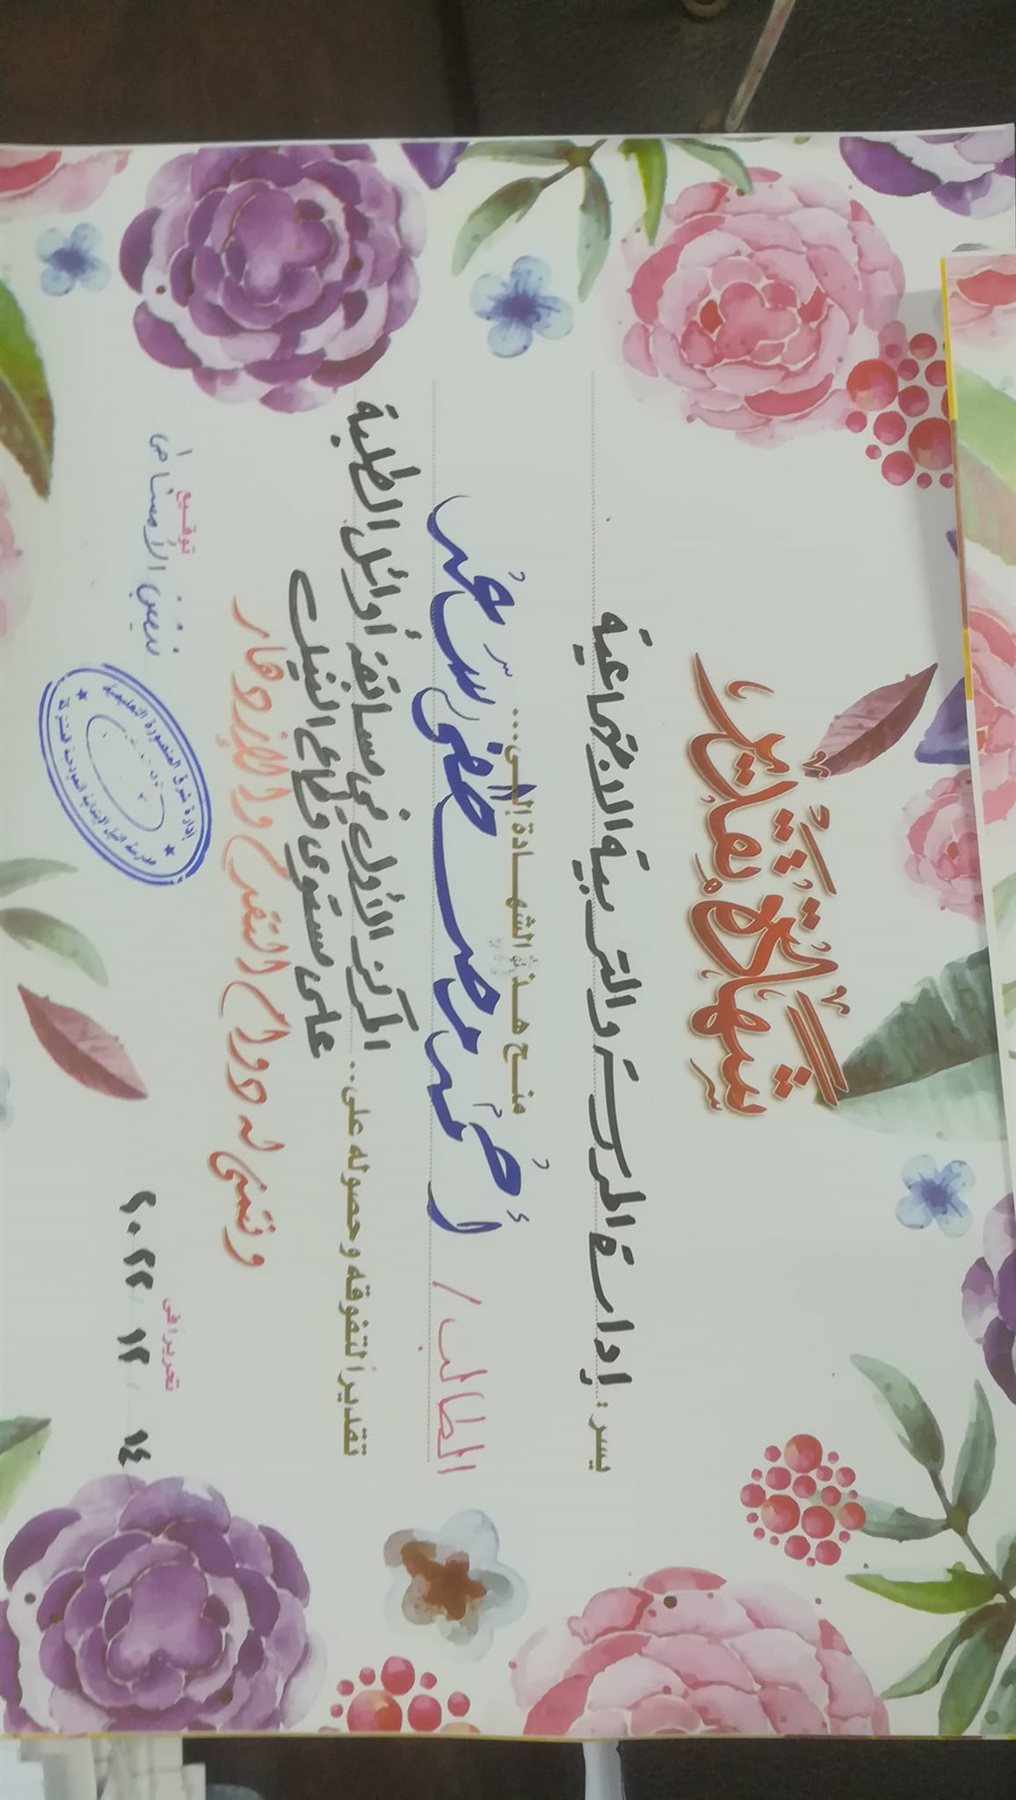 شهادة تقدير
يسر: إدارة المدرسة والتربية الاجتماعية
منح هذه الشهادة إلى...
الطالب / أحمد مصطفى السعيد
تقديراً لتفوقه وحصوله على.. المركز الأول في مسابقة أوائل الطلبة
على مستوى قطاع النيل
ونتمنى له دوام التقدم والإزدهار
تحريراً في
١٤ / ١٢ / ٢٠٢٢
توقيع
إدارة شرق المنصورة التعليمية